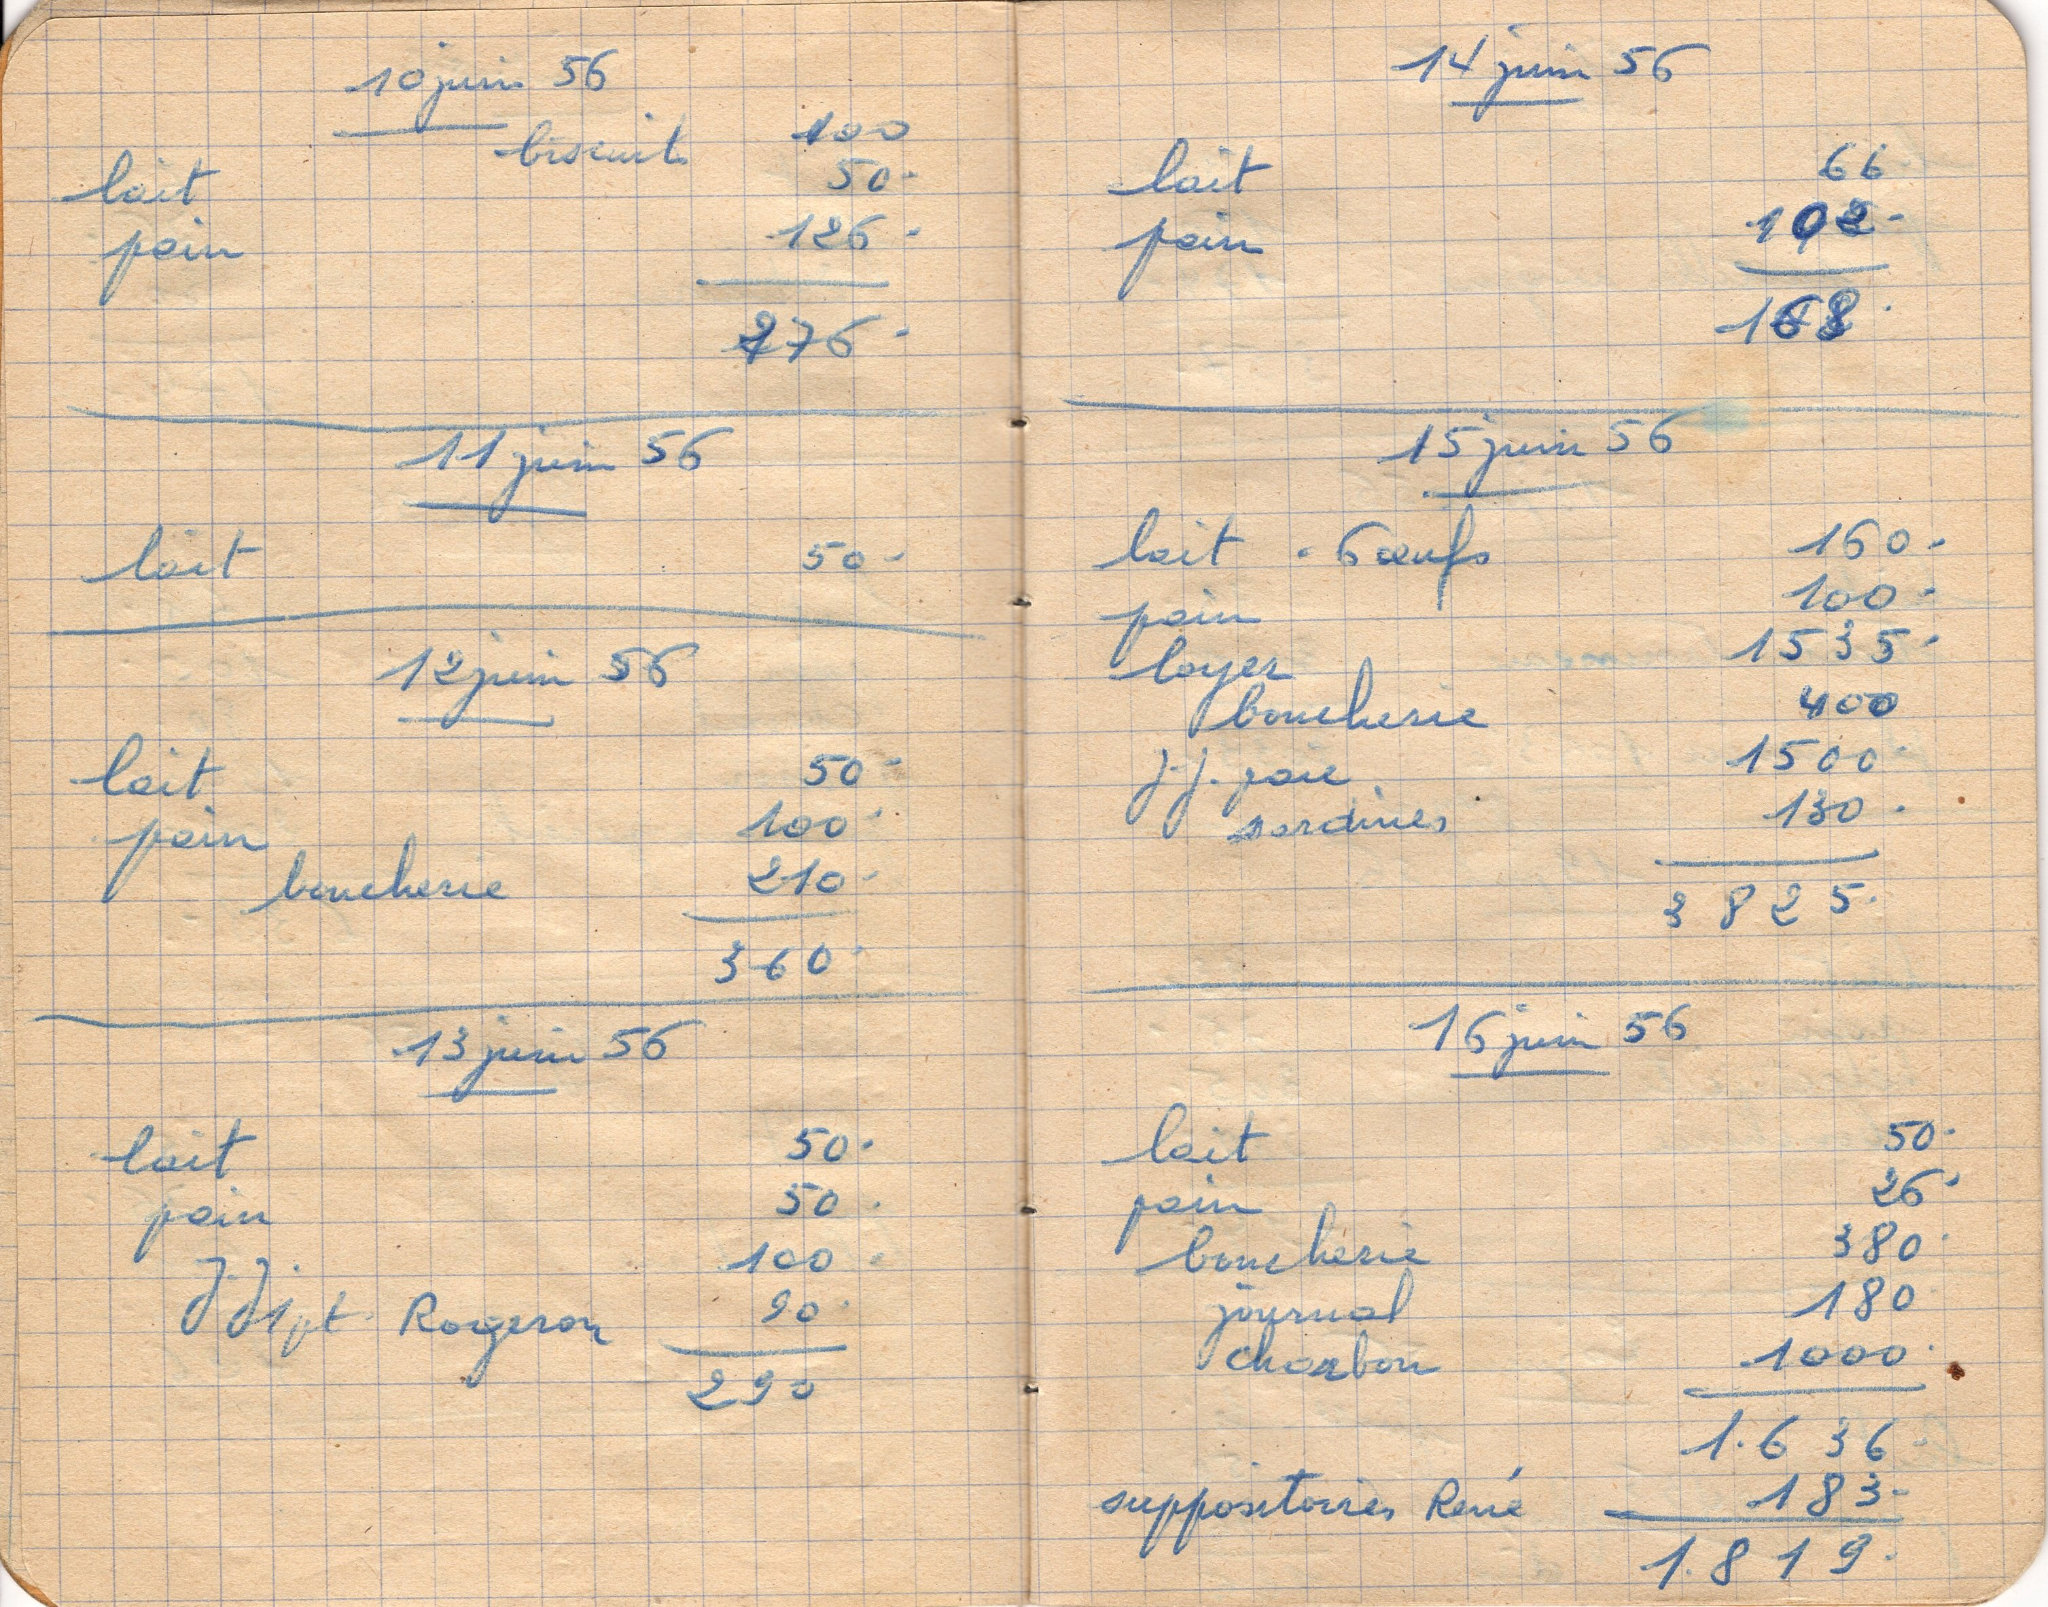 10 juin 56
biscuits 100
lait 50.
pain 126.
276.
11 juin 56
lait 50.
12 juin 56
lait 50.
pain 100.
boucherie 210.
360.
13 juin 56
lait 50.
pain 50.
J.J. 100.
JJ 1 pt. Rogeron 90.
290
14 juin 56
lait 66
pain 102.
168.
15 juin 56
lait . 6 œufs 160.
pain 100.
loyer 1535.
boucherie 400
J.J. paie 1500.
sardines 130.
3825.
16 juin 56
lait 50.
pain 26.
boucherie 380.
journal 180.
charbon 1000.
1.636.
suppositoires René 183.
1.819.